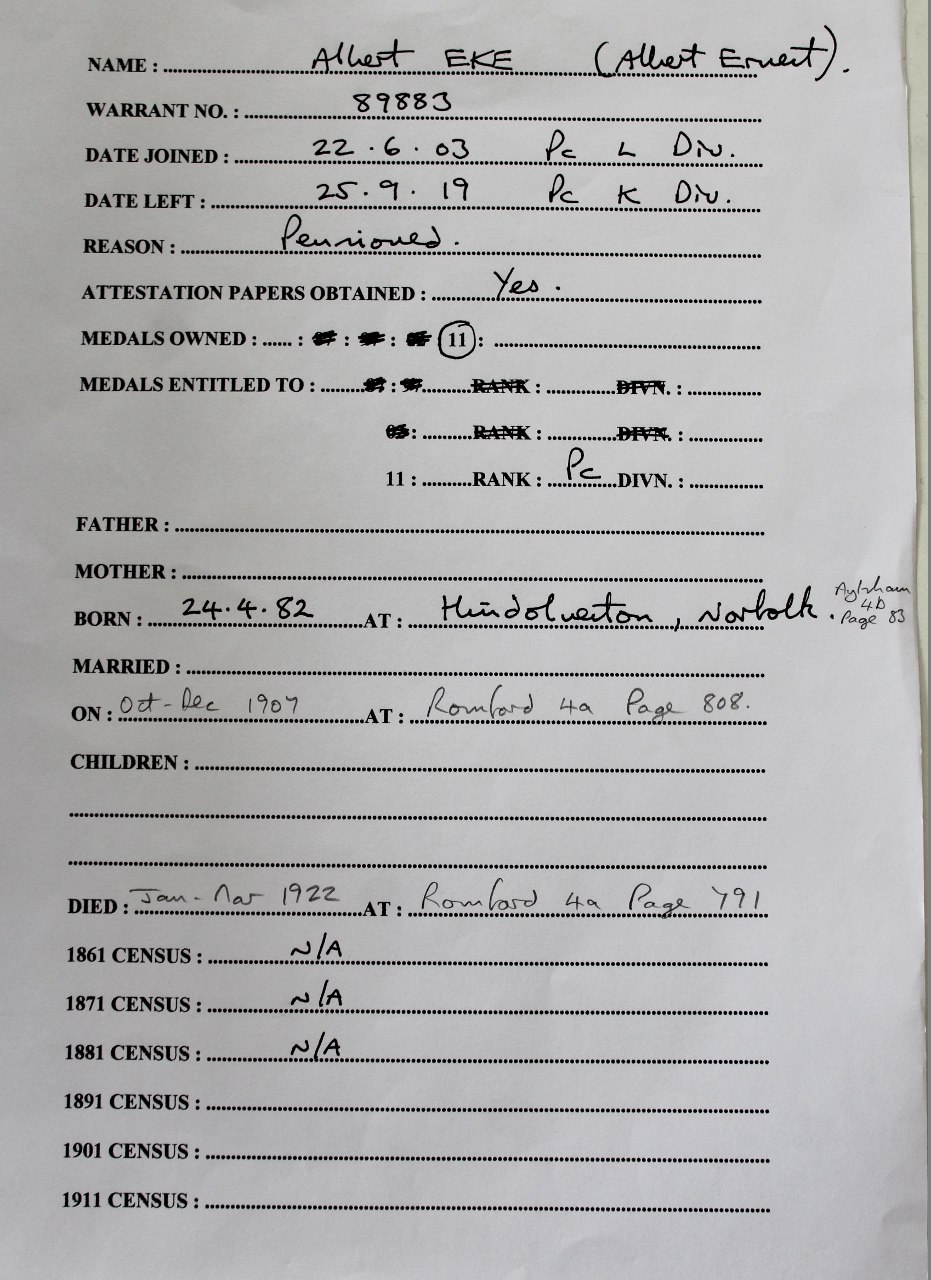 NAME : Albert EKE (Albert Ernest).
WARRANT NO. : 89883
DATE JOINED : 22.6.03 Pc L Div.
DATE LEFT : 25.9.19 Pc K Div.
REASON : Pensioned.
ATTESTATION PAPERS OBTAINED : Yes.
MEDALS OWNED : ...... : : : 11 :
MEDALS ENTITLED TO : ........ : ......... RANK : ............. DIVN. :
03 : .......... RANK : ............. DIVN. :
11 : .......... RANK : Pc DIVN. :
FATHER :
MOTHER :
BORN : 24.4.82 AT : Hindolveston, Norfolk. Aylsham
4b
Page 83
MARRIED :
ON : Oct-Dec 1907 AT : Romford 4a Page 808.
CHILDREN :
DIED : Jan-Mar 1922 AT : Romford 4a Page 791
1861 CENSUS : N/A
1871 CENSUS : N/A
1881 CENSUS : N/A
1891 CENSUS :
1901 CENSUS :
1911 CENSUS :